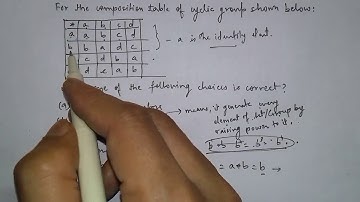 For the composition table of cyclic group shown below:
* a b c d
a a b c d } - a is the identity elmt.
b b a d c
c d b a
d c a b
of the following choices is correct?
(a) → means, it generate every
element of set/group by
raising power to it.
b*b = b² = b³ = b⁴
= a*b = b →